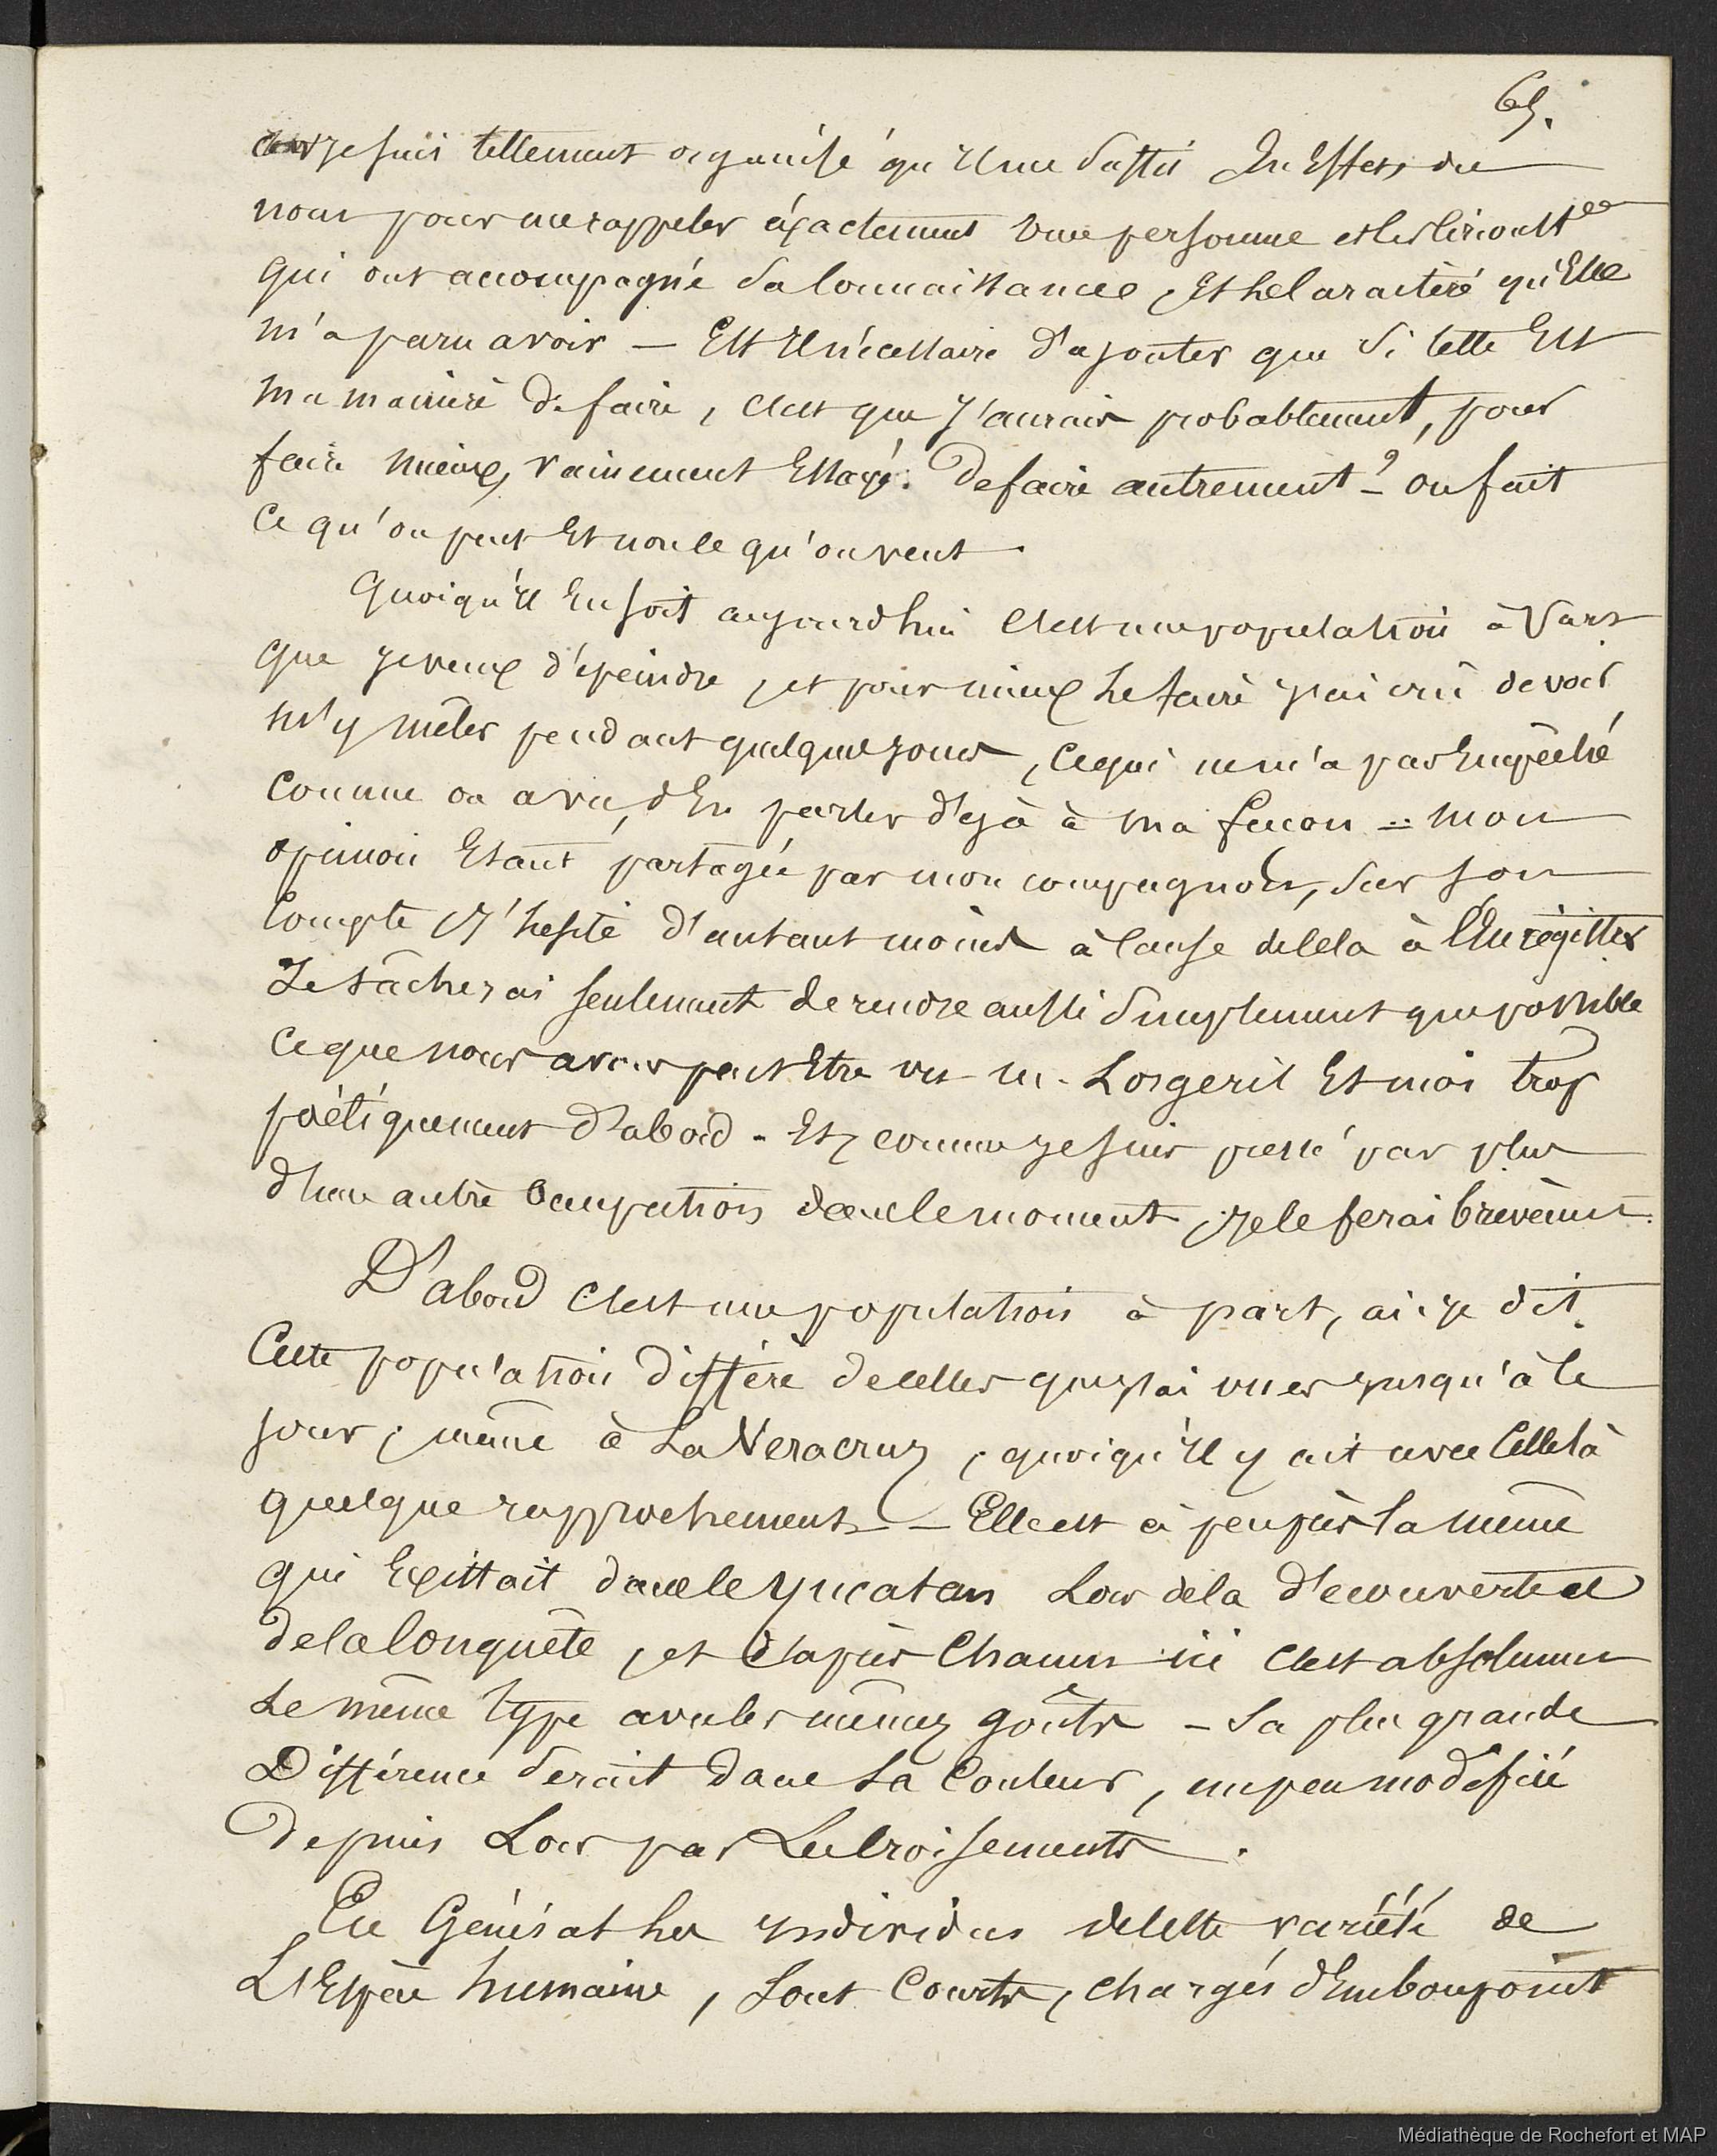 65.
car je suis tellement organisé qu'il me suffit En Effet, du
nom pour me rappeler éxactement une personne et les circonst^ces
qui ont accompagné sa connaissance, Et le caractère qu'Elle
m'a paru avoir — Est il nécessaire d'ajouter que si cette Est
ma manière de faire, c'est que j'aurais probablement, pour
faire mieux, vainement Essayé. de faire autrement ? — on fait
ce qu'on peut Et non ce qu'on veut.
Quoiqu'il En soit aujourd'hui c'est une population à part
que je veux d'épeindre, et pour mieux le faire j'ai crû devoir
m'y mêler pendant quelque jours, ce qui ne m'a pas Empêché
comme on a vu, d'En parler déjà à ma façon = mon
opinion Etant partagée par mon compagnon, sur son
compte j'hesite d'autant moins à cause de cela à l'Enrégistrer
Je tâcherai seulement de rendre aussi simplement que possible
ce que nous avons peut Etre vu m. Lorgeril Et moi trop
poétiquement d'abord. Et, comme je suis pressé par plus
d'une autre occupation dans le moment, je le ferai brièvemt.
D'abord c'est une population à part, ai-je dit.
Cette population diffère de celles que j'ai vues jusqu'à ce
jour, même à La Veracruz, quoiqu'il y ait avec celle là
quelque rapprochement — Elle est à peu près la même
qui Existait dans le Yucatan Lors de la découverte et
de la Conquête, et d'après Chacun ici c'est absolument
Le même type avec les mêmes goûts — La plus grande
Différence serait dans La Couleur, un peu modifiée
depuis Lors par Les croisements.
En Général les individus de cette variété de
L'Espèce humaine, Sont Courts, chargés d'Embonpoint
Médiathèque de Rochefort et MAP